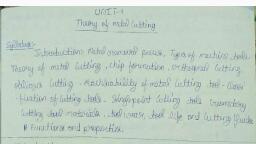 UNIT-1
Theory of metal Cutting
Syllabus:
Introduction: Metal removal process, Types of machine tools
Theory of metal Cutting, chip formation, orthogonal Cutting
oblique Cutting - Machinability of metal Cutting tool -
of Cutting tools - Single point Cutting tools
Cutting tool materials, tool wear, tool life and Cutting fluids
Functions and properties.